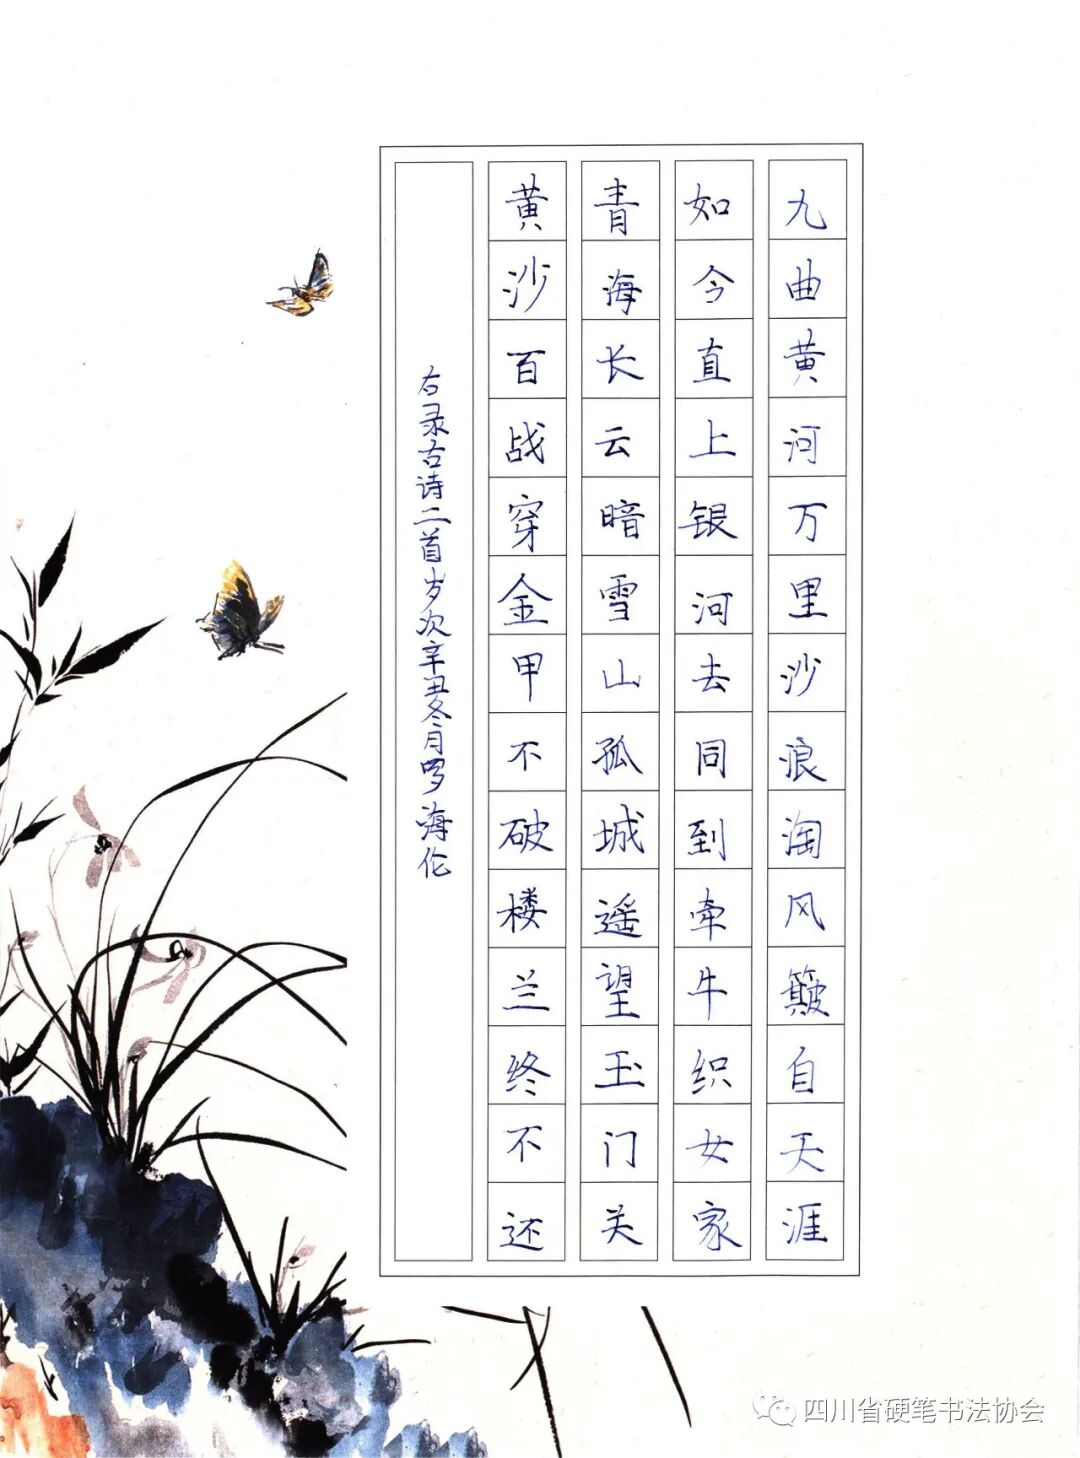 九曲黄河万里沙浪淘风簸自天涯
如今直上银河去同到牵牛织女家
青海长云暗雪山孤城遥望玉门关
黄沙百战穿金甲不破楼兰终不还
右录古诗二首岁次辛丑冬月罗海伦
四川省硬笔书法协会